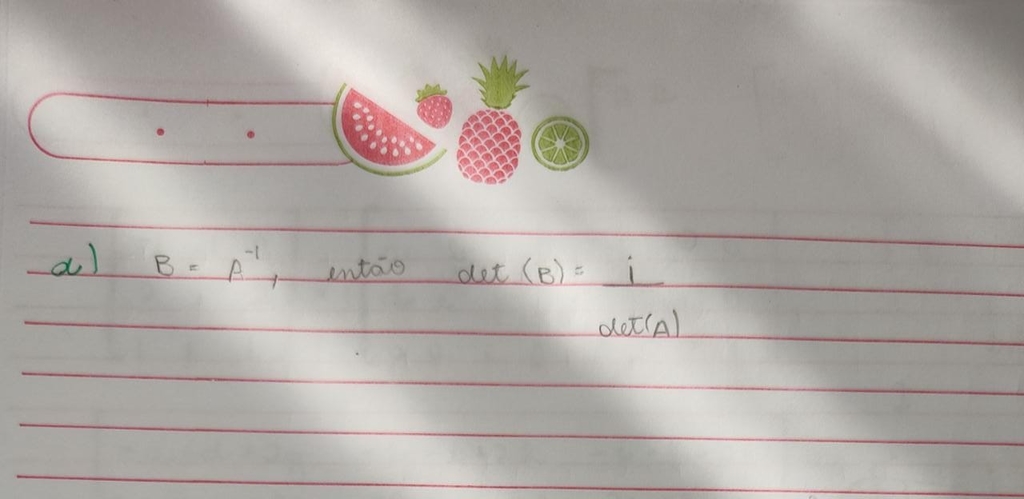 a) B = A⁻¹, então det (B) = 1
det(A)